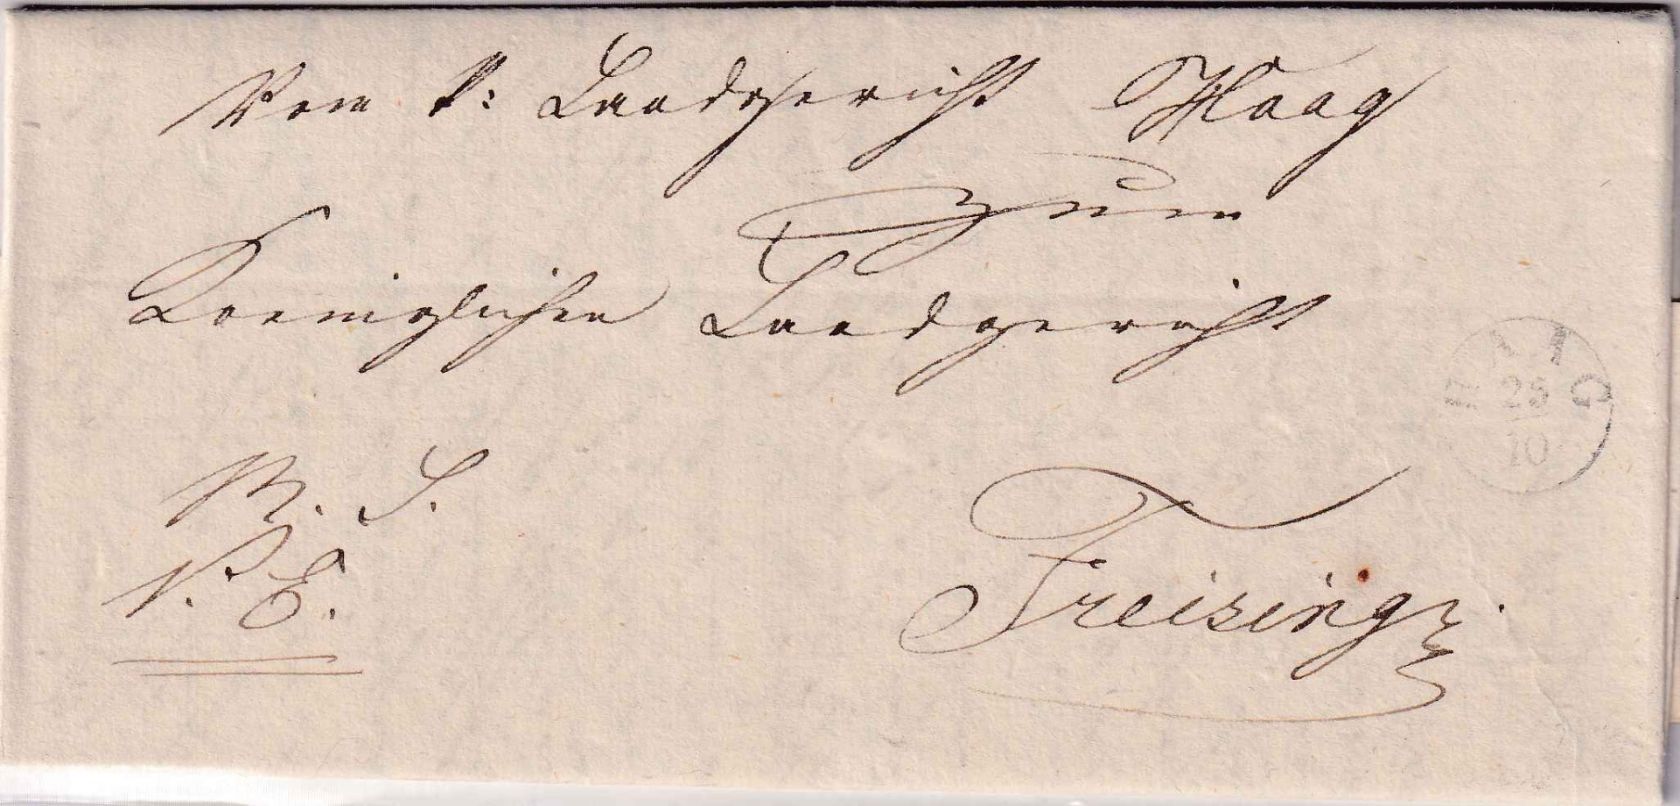 Vom k: Landgericht Haag
zum
Koeniglichen Landgericht
R. S.
P. E.
Freising.
HAAG
25
10